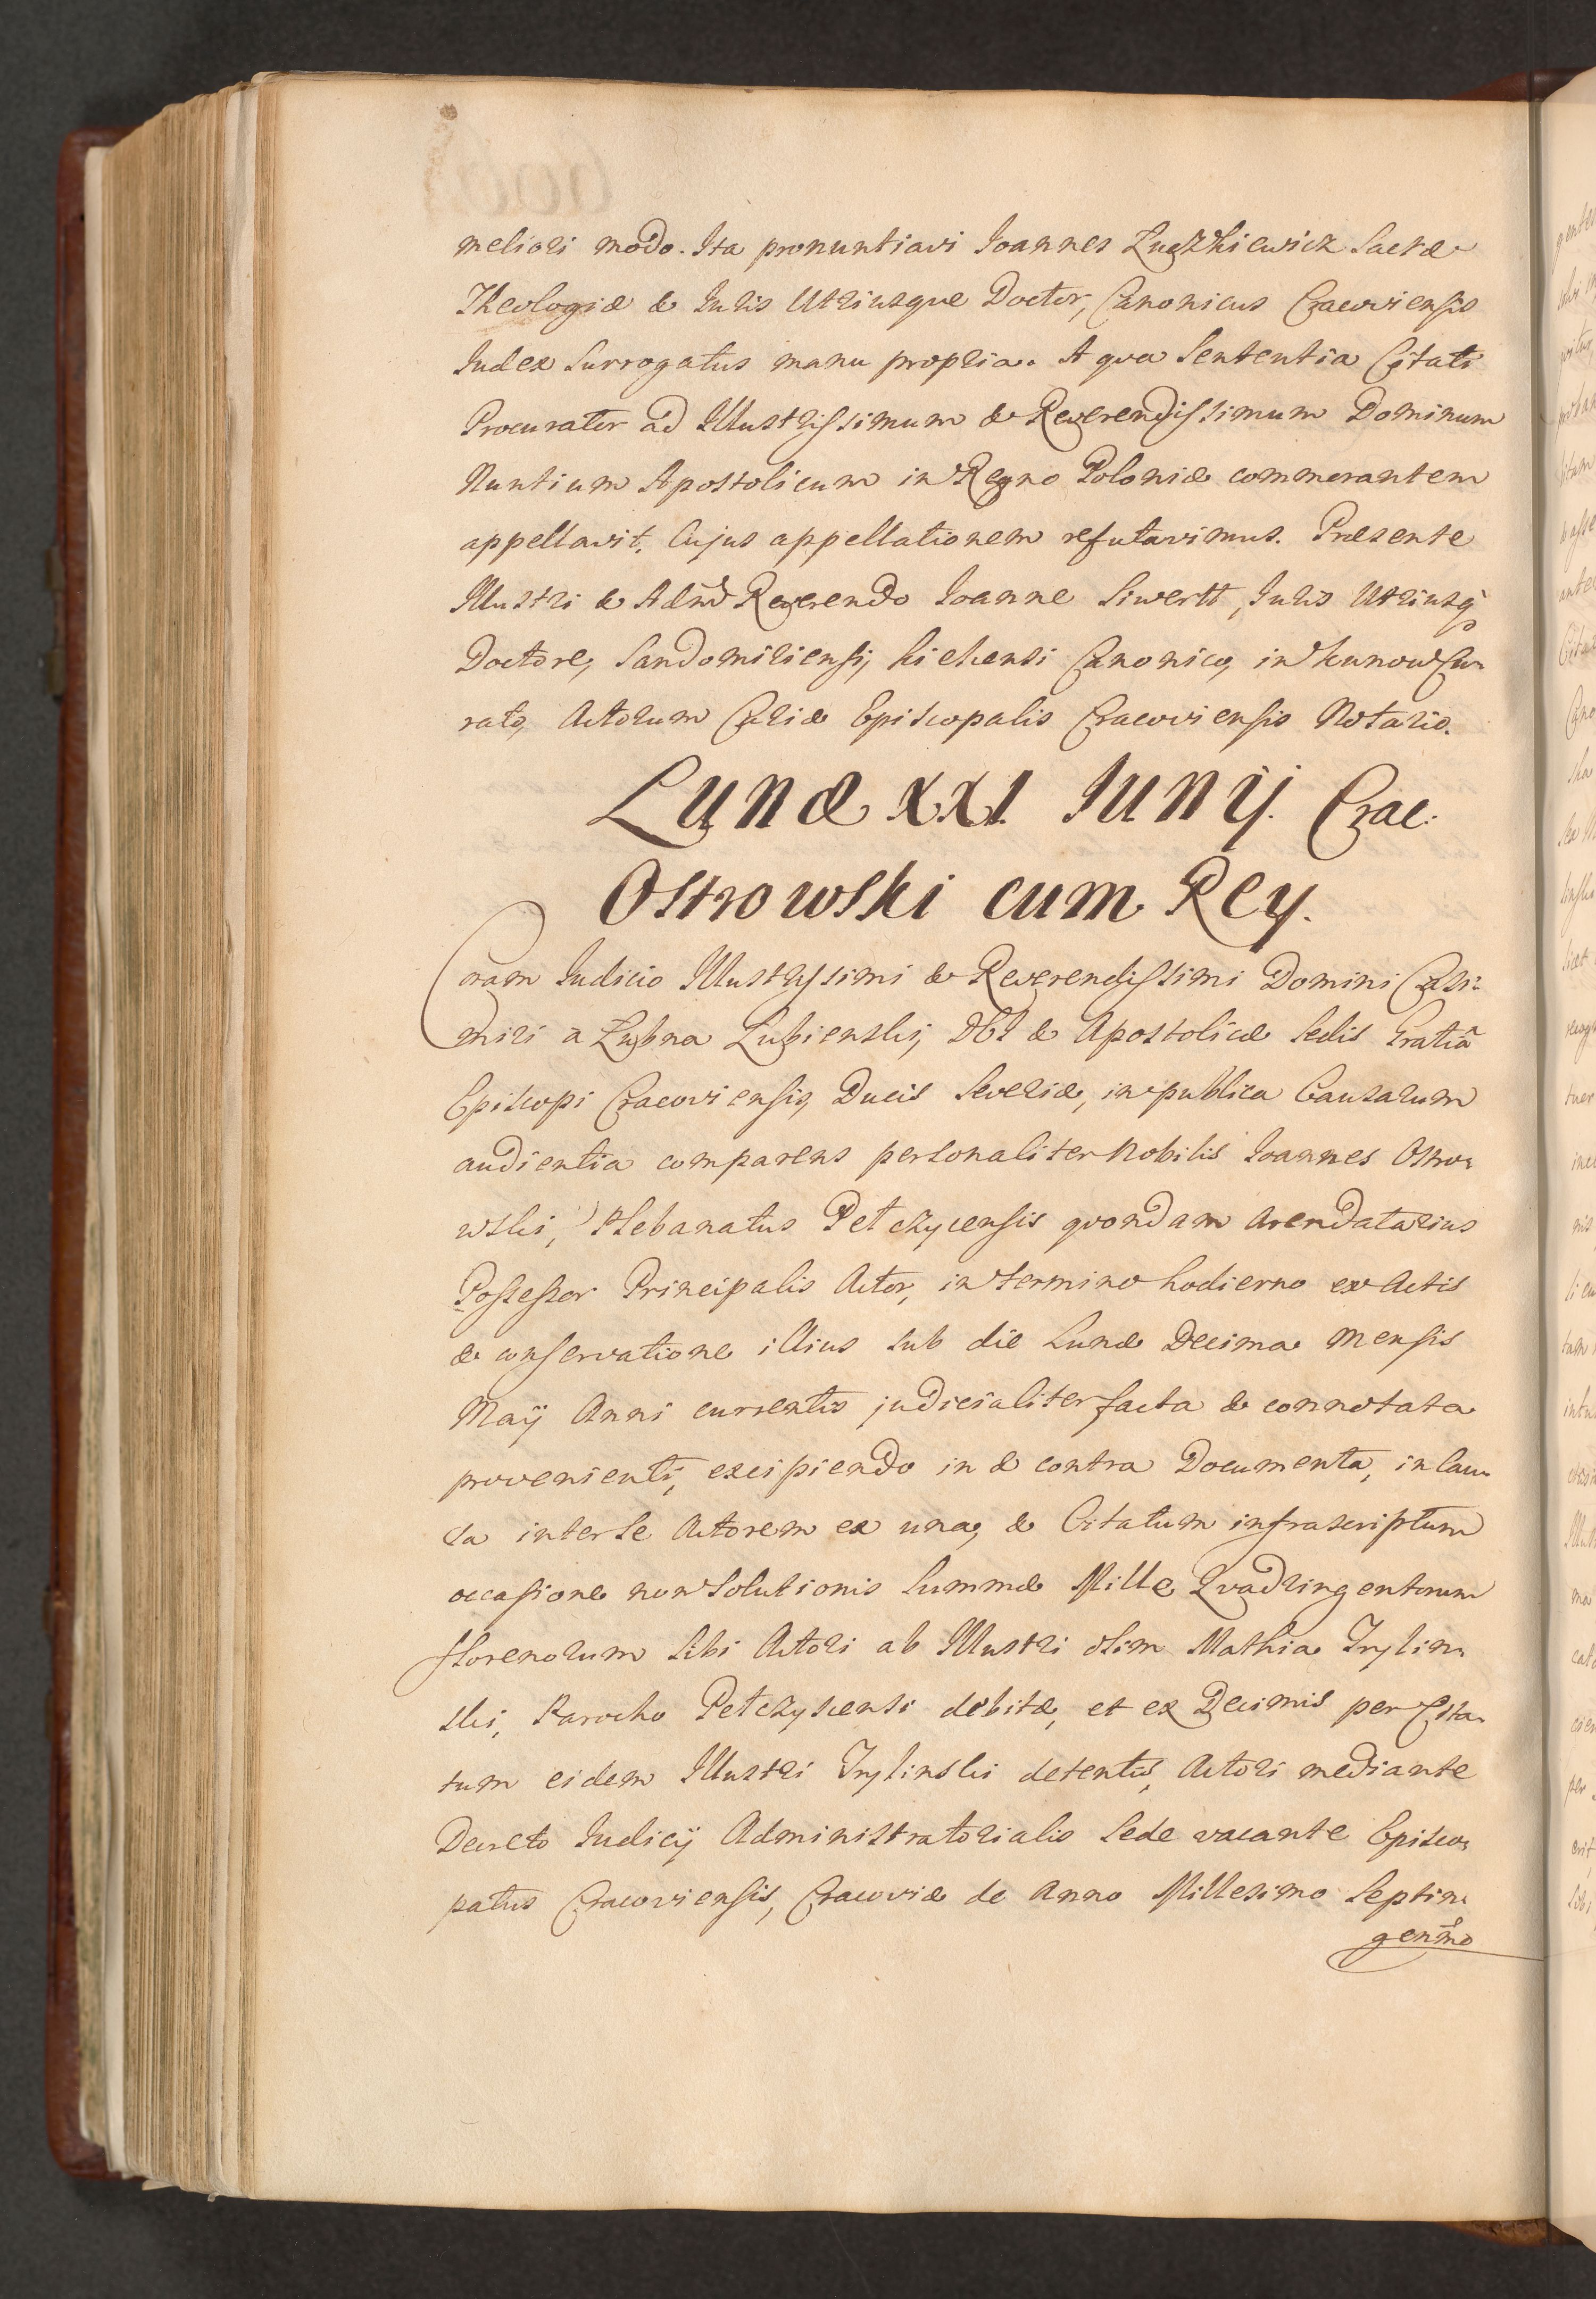 meliori modo. Ita pronuntiavi Joannes Łuczkiewicz Sacræ
Theologiæ & Juris Utriusque Doctor, Canonicus Cracoviensis
Judex Surrogatus manu propria. A qva Sententia Citati
Procurator ad Illustrissimum & Reverendissimum Dominum
Nuntium Apostolicum in Regno Poloniæ commorantem
appellavit, Cujus appellationem refutavimus. Præsente
Illustri & Adm̃d Reverendo Joanne Siwertt, Juris Utriusq̃
Doctore, Sandomiriensi, Kiehensi Canonico, in Kunow Cu-
rato, Actorum Curiæ Episcopalis Cracoviensis Notario.
Lunæ XXI Junij. Crac:
Ostrowski cum Rey.
Coram Judicio Illustrissimi & Reverendissimi Domini Casi-
miri a Łubna Łubienski, DEI & Apostolicæ Sedis Gratiã
Episcopi Cracoviensis, Ducis Severiæ, in publica Causarum
audientia comparens personaliter Nobilis Joannes Ostro-
wski, Plebanatus Petczycensis qvondam Arendatarius
Possessor Principalis Actor, in termino hodierno ex Actis
& conservatione illius sub die Lunæ Decima Mensis
Maij Anni currentis judicialiter facta & connotata
provenienti, excipiendo in & contra Documenta, in Cau-
sa inter se Actorem ex una, & Citatum infrascriptum
occasione non Solutionis Summæ Mille Qvadringentorum
florenorum Sibi Actori ab Illustri olim Mathia Trylin-
ski, Parocho Petczyscensi debitæ, et ex Decimis per Cita-
tum eidem Illustri Trylinski detentis, Actori mediante
Decreto Judicij Administratorialis Sede vacante Episco-
patus Cracoviensis, Cracoviæ de Anno Millesimo Septin-
genm̃o